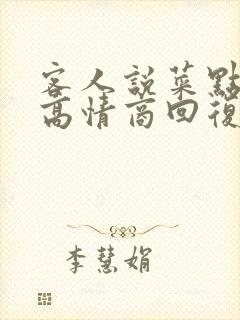 客人說菜點
高情商回復
李慧娟